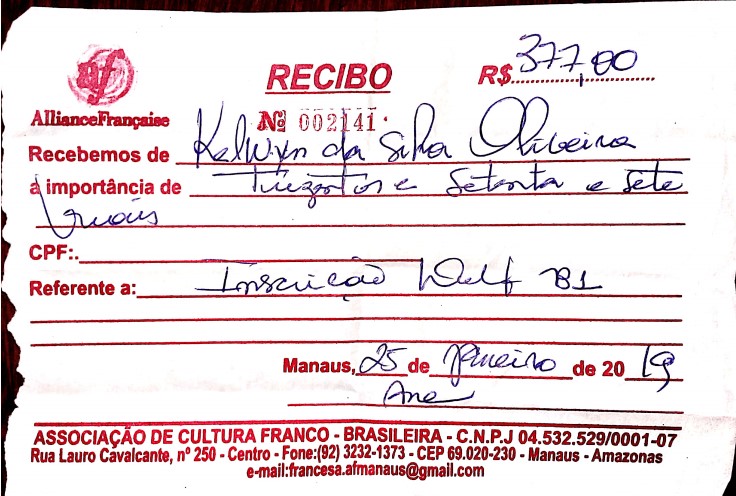 af
AllianceFrançaise
RECIBO
R$ 377,00
Nº 002141
Recebemos de Kelwyn da Silva Oliveira
a importância de Trezentos e Setenta e Sete
reais
CPF:
Referente a: Inscrição Delf B1
Manaus, 25 de Janeiro de 2019
Ana
ASSOCIAÇÃO DE CULTURA FRANCO - BRASILEIRA - C.N.P.J 04.532.529/0001-07
Rua Lauro Cavalcante, nº 250 - Centro - Fone:(92) 3232-1373 - CEP 69.020-230 - Manaus - Amazonas
e-mail:francesa.afmanaus@gmail.com